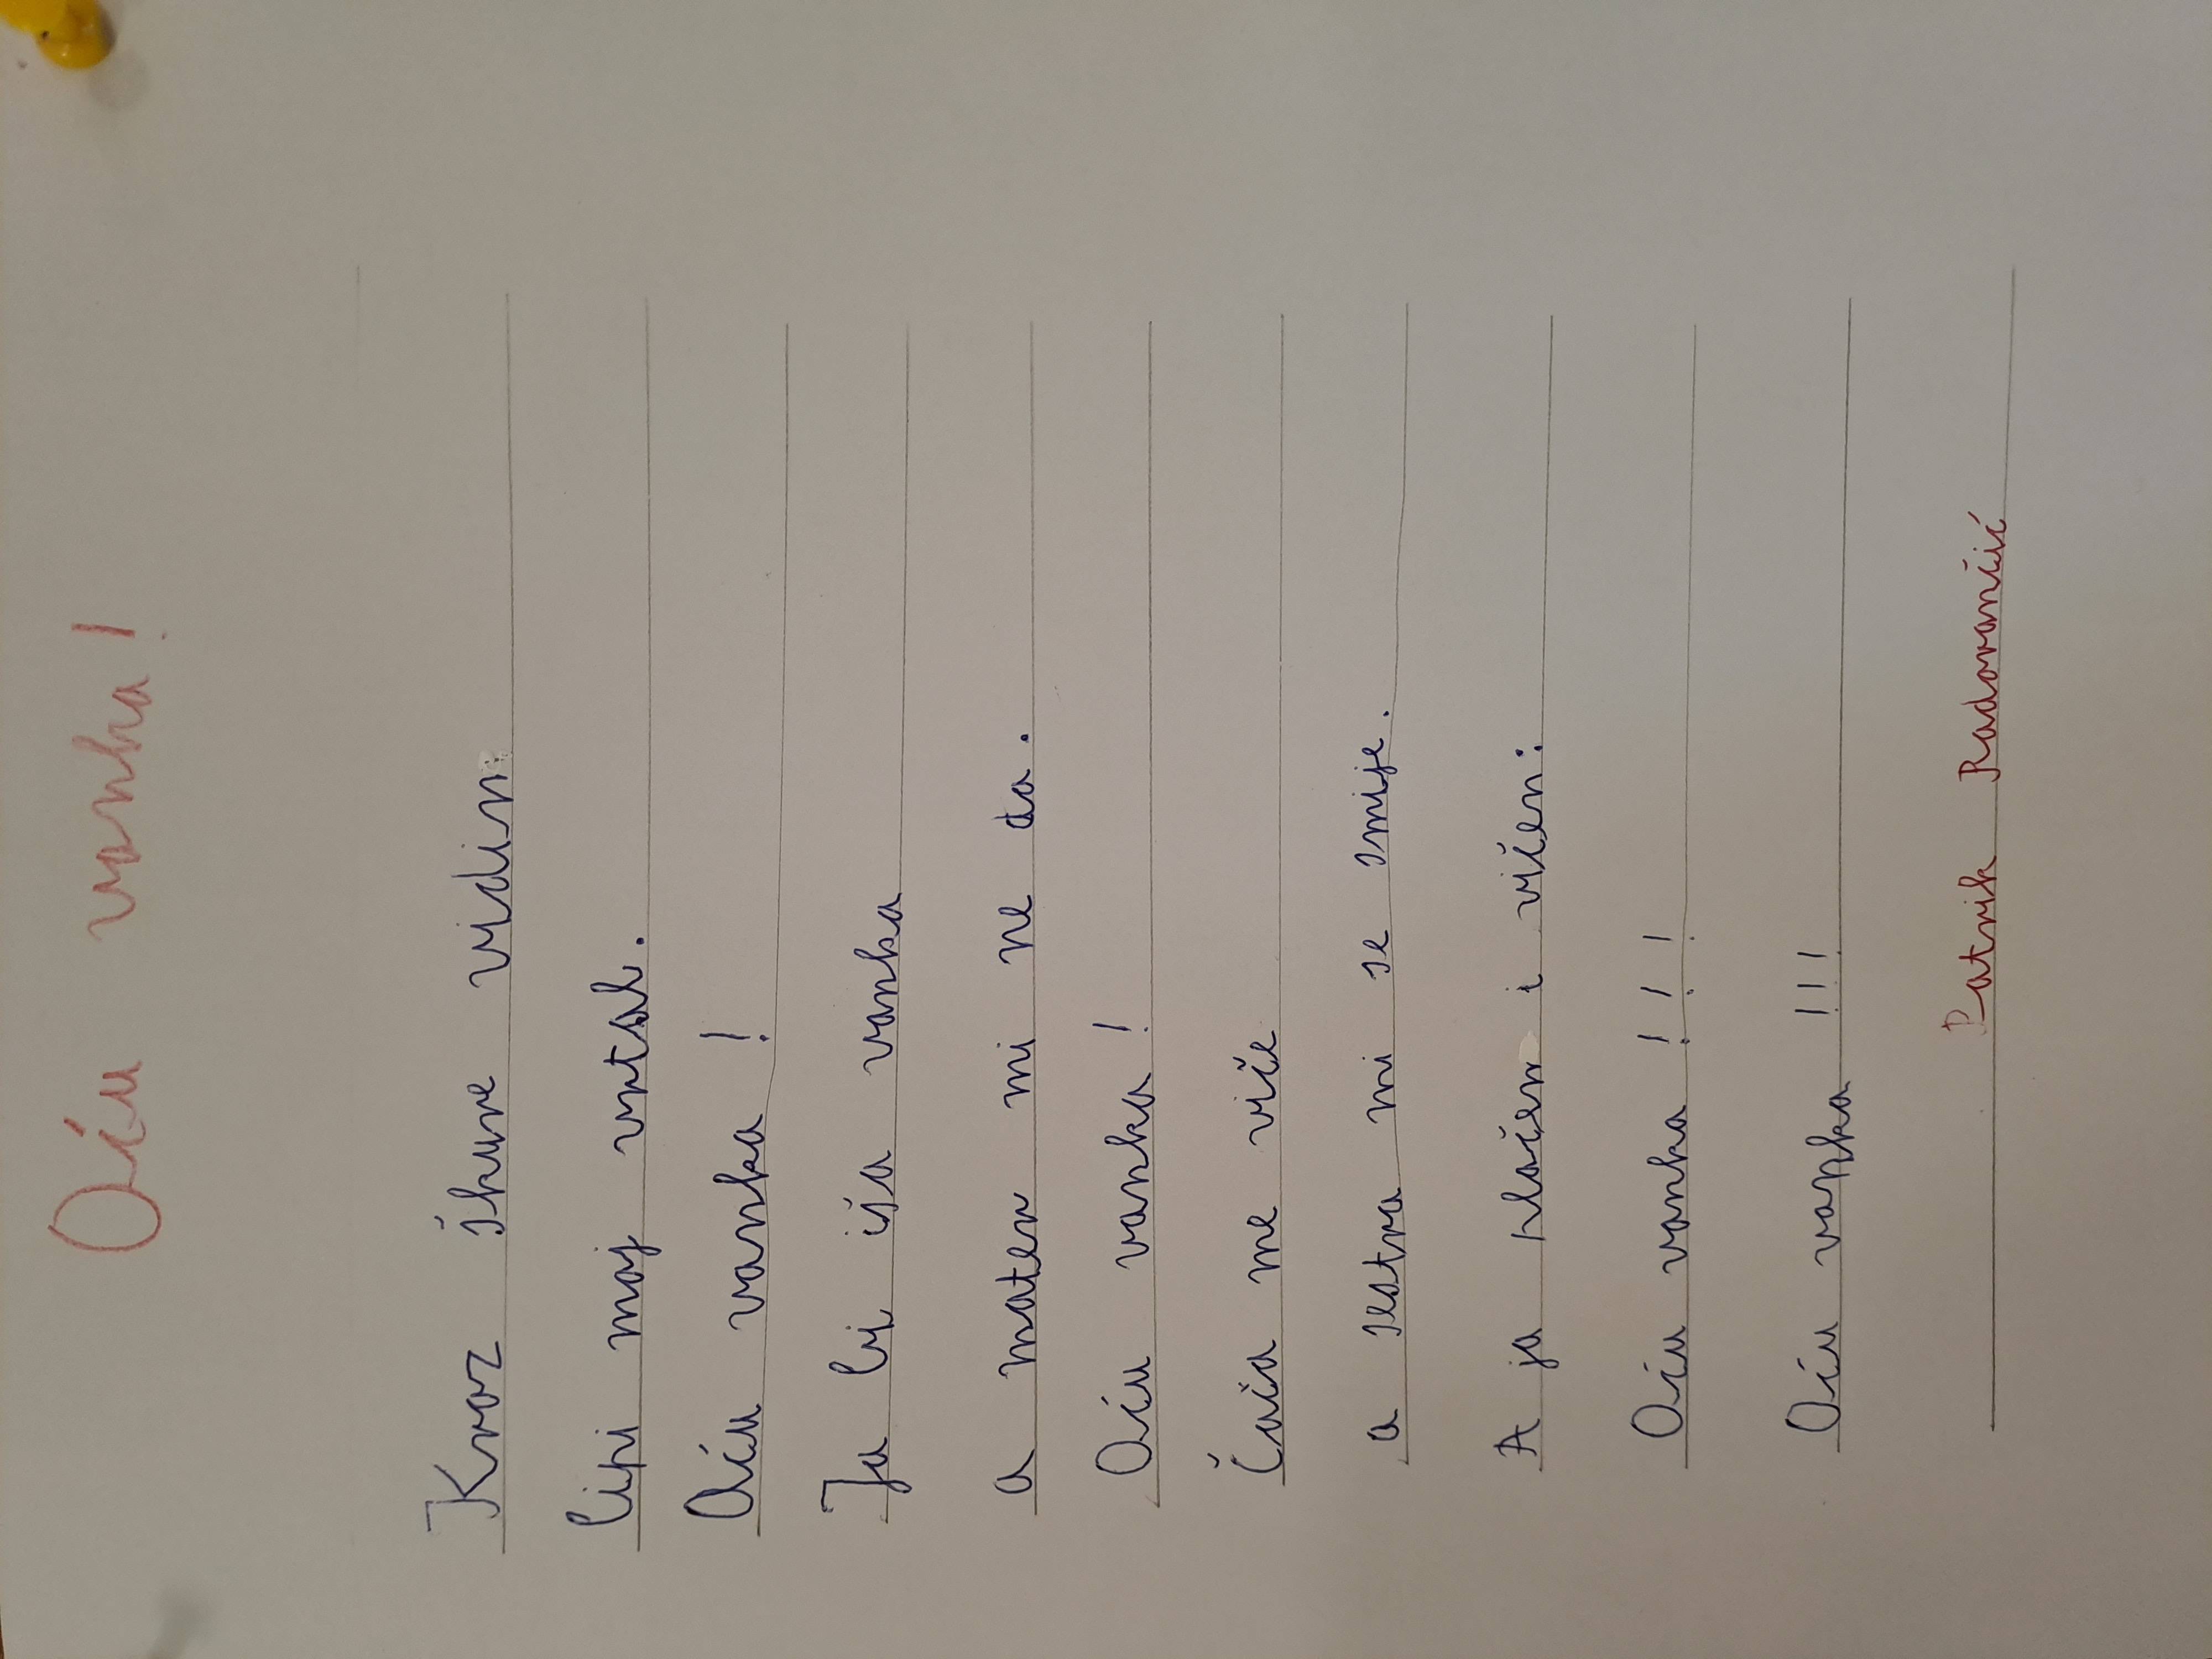 Oću vanka!
Kroz škure vidin
lipi moj vrtal.
Oću vanka!
Ja bi išа vanka
a mater mi ne da.
Oću vanka!
Ćaća me viče
a sestra mi se smije.
A ja plačen i vičen:
Oću vanka!!!
Oću vanka!!!
Patrik Radovančić